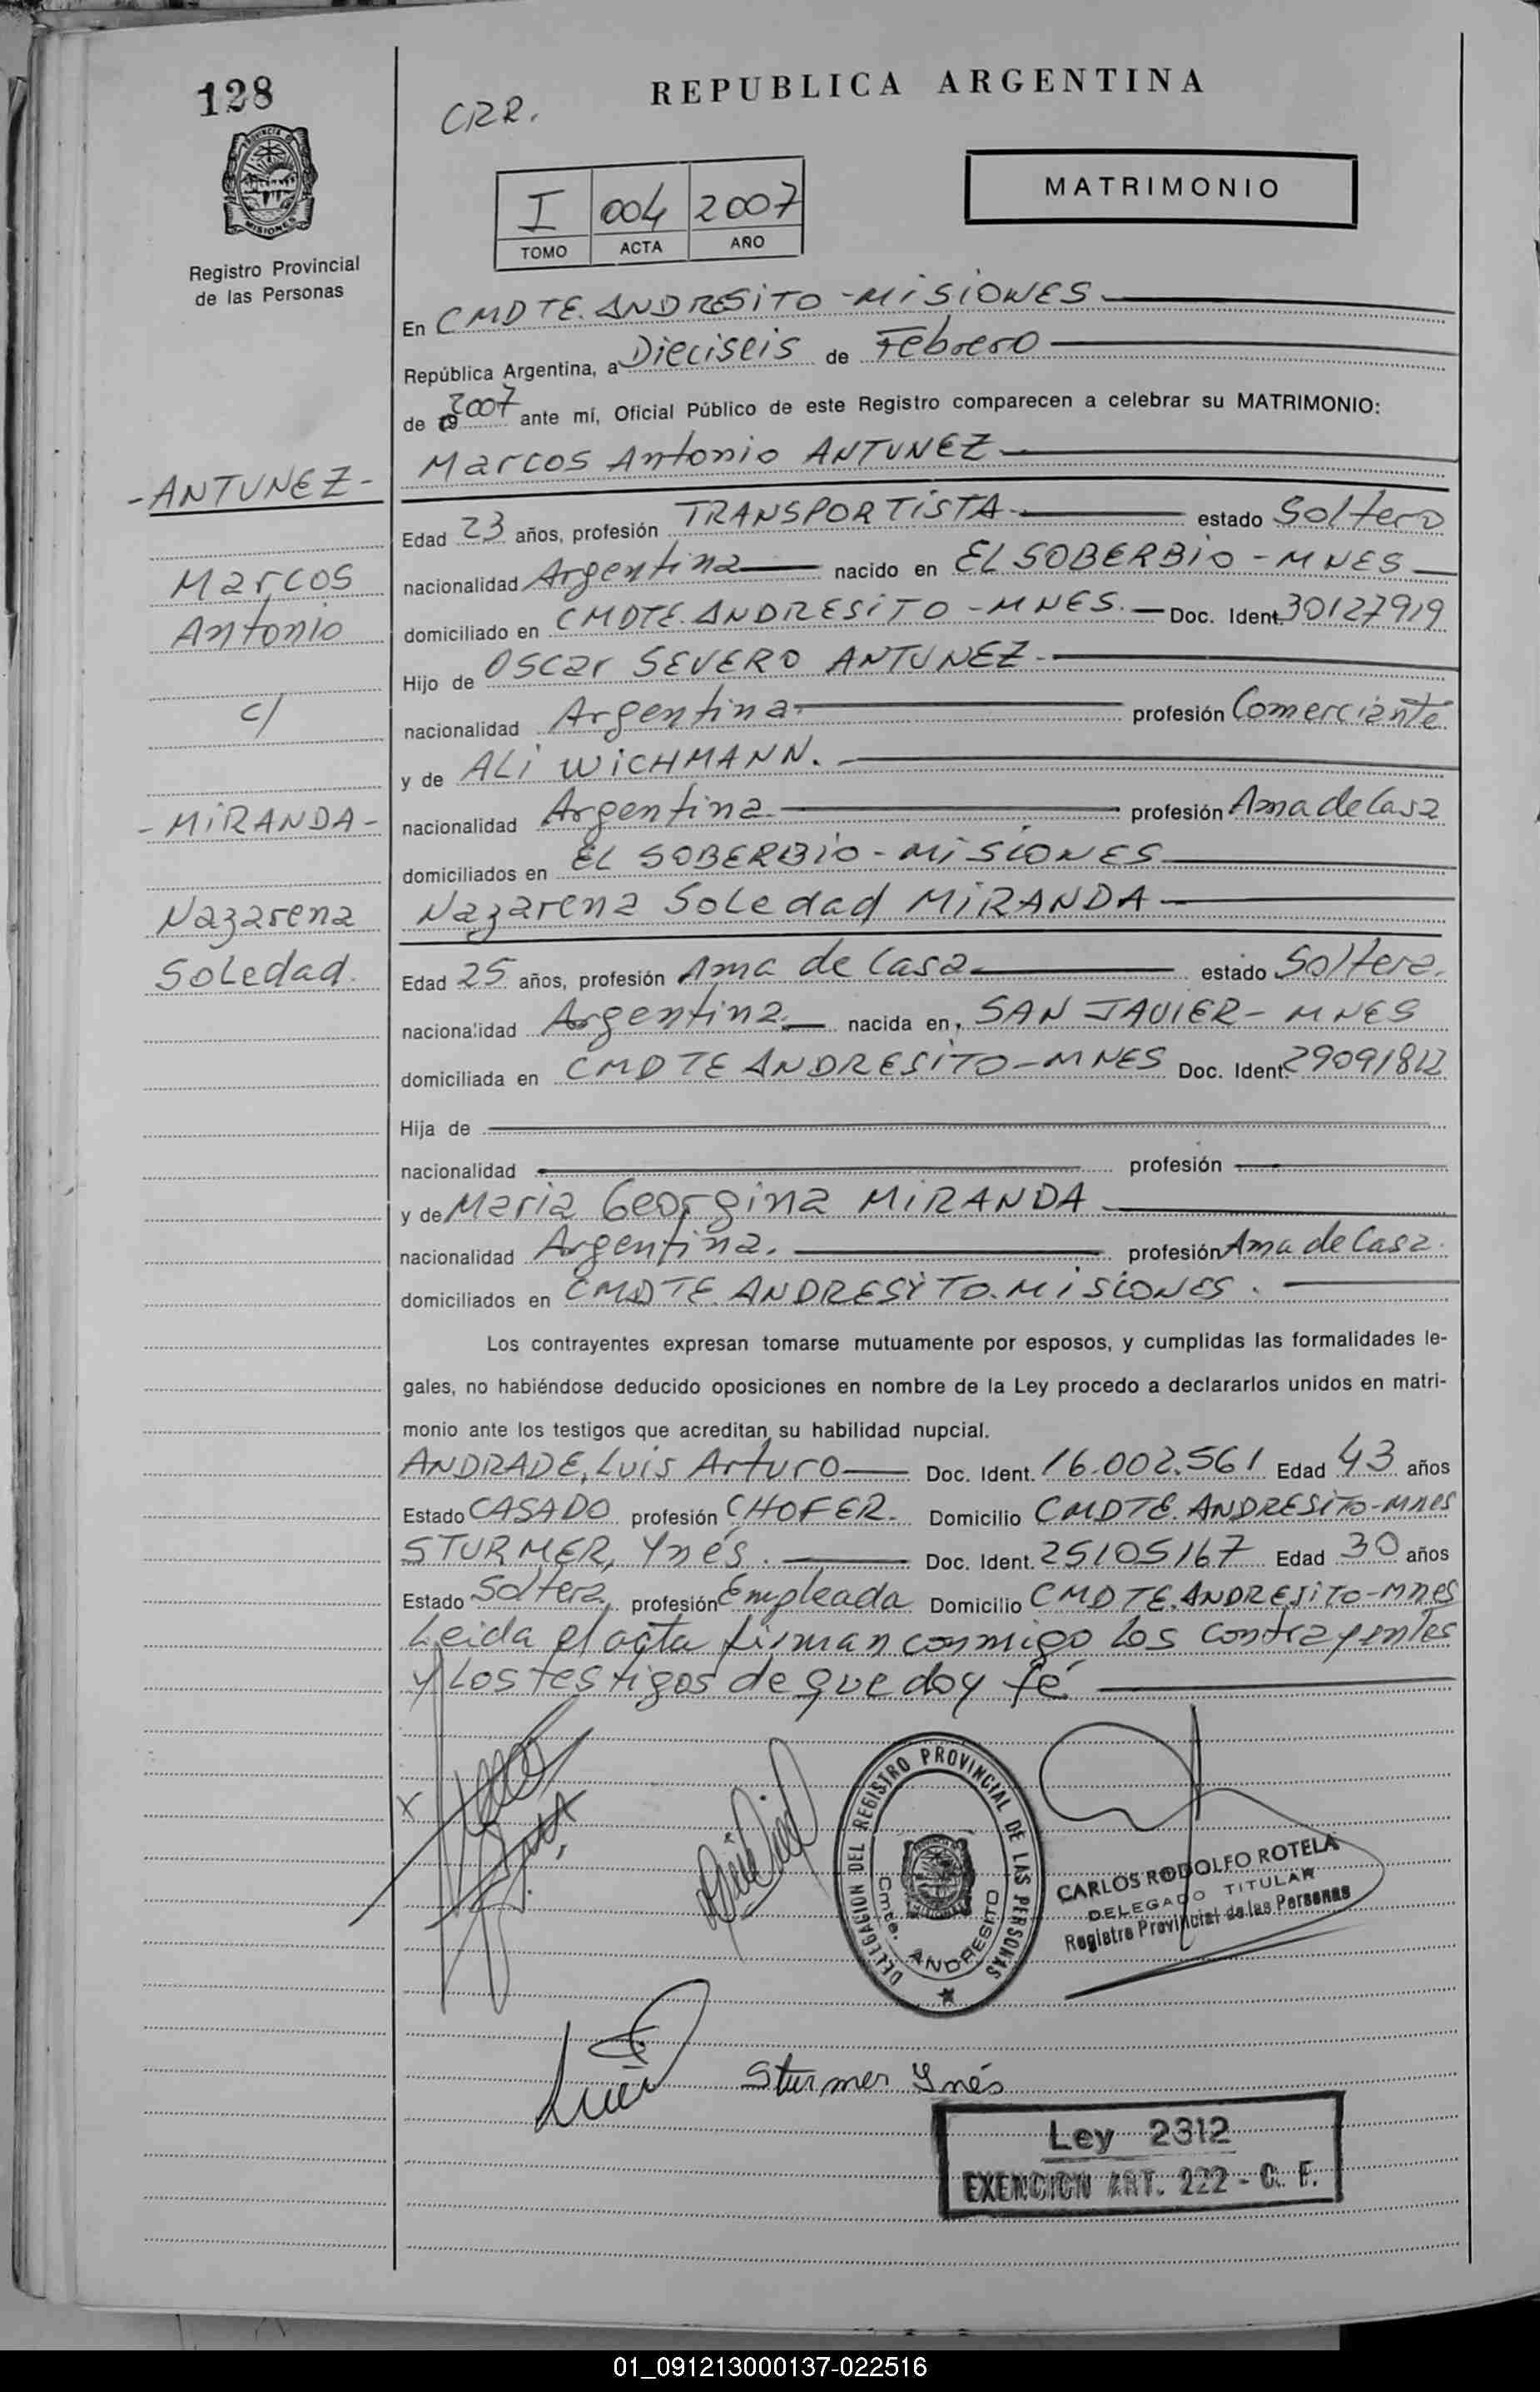 128
CRR.
REPUBLICA ARGENTINA
PROVINCIA DE
MISIONES
Registro Provincial
de las Personas
I 004 2007
TOMO ACTA AÑO
MATRIMONIO
En CMDTE. ANDRESITO - MISIONES
República Argentina, a Dieciseis de Febrero
de 19 2007 ante mí, Oficial Público de este Registro comparecen a celebrar su MATRIMONIO:
- ANTUNEZ -
Marcos Antonio ANTUNEZ
Edad 23 años, profesión TRANSPORTISTA estado Soltero
Marcos
nacionalidad Argentina nacido en EL SOBERBIO - MNES
Antonio
domiciliado en CMDTE. ANDRESITO - MNES. Doc. Ident. 30127919
Hijo de Oscar SEVERO ANTUNEZ
c/
nacionalidad Argentina profesión Comerciante
y de ALI WICHMANN.
- MIRANDA -
nacionalidad Argentina profesión Ama de Casa
domiciliados en EL SOBERBIO - MISIONES
Nazarena
Nazarena Soledad MIRANDA
Soledad
Edad 25 años, profesión Ama de Casa estado Soltera.
nacionalidad Argentina nacida en SAN JAVIER - MNES
domiciliada en CMDTE ANDRESITO - MNES Doc. Ident. 29091812
Hija de
nacionalidad profesión
y de Maria Georgina MIRANDA
nacionalidad Argentina. profesión Ama de Casa.
domiciliados en CMDTE. ANDRESITO. MISIONES.
Los contrayentes expresan tomarse mutuamente por esposos, y cumplidas las formalidades le-
gales, no habiéndose deducido oposiciones en nombre de la Ley procedo a declararlos unidos en matri-
monio ante los testigos que acreditan su habilidad nupcial.
ANDRADE, Luis Arturo Doc. Ident. 16.002.561 Edad 43 años
Estado CASADO profesión CHOFER. Domicilio CMDTE. ANDRESITO - Mnes
STURMER, Ynés. Doc. Ident. 25105167 Edad 30 años
Estado Soltera profesión Empleada Domicilio CMDTE. ANDRESITO - Mnes
Leida el acta firman conmigo los contrayentes
y los testigos de que doy fé
x
DELEGACION DEL REGISTRO PROVINCIAL DE LAS PERSONAS
Cmte. ANDRESITO
CARLOS RODOLFO ROTELA
DELEGADO TITULAR
Registro Provincial de las Personas
Sturmer Ynés
Ley 2312
EXENCION ART. 222 - C. F.
01_091213000137-022516